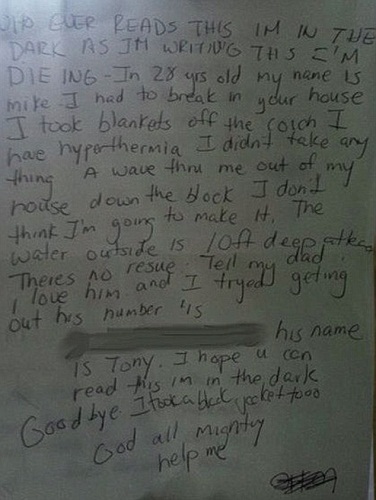 WHO EVER READS THIS IM IN THE
DARK AS I'M WRITING THIS I'M
DIEING - In 28 yrs old my name is
mike I had to break in your house
I took blankets off the coich I
hae hyperthermia I didn't take any
thing A wave thru me out of my
house down the block I don't
think I'm going to make it. The
water outside is 10ft deep atleas
Theres no resue. Tell my dad
I love him and I tryed geting
out his number is
his name
is Tony. I hope u can
read this im in the dark
I took a black jacket tooo
Goodbye.
God all mighty
help me